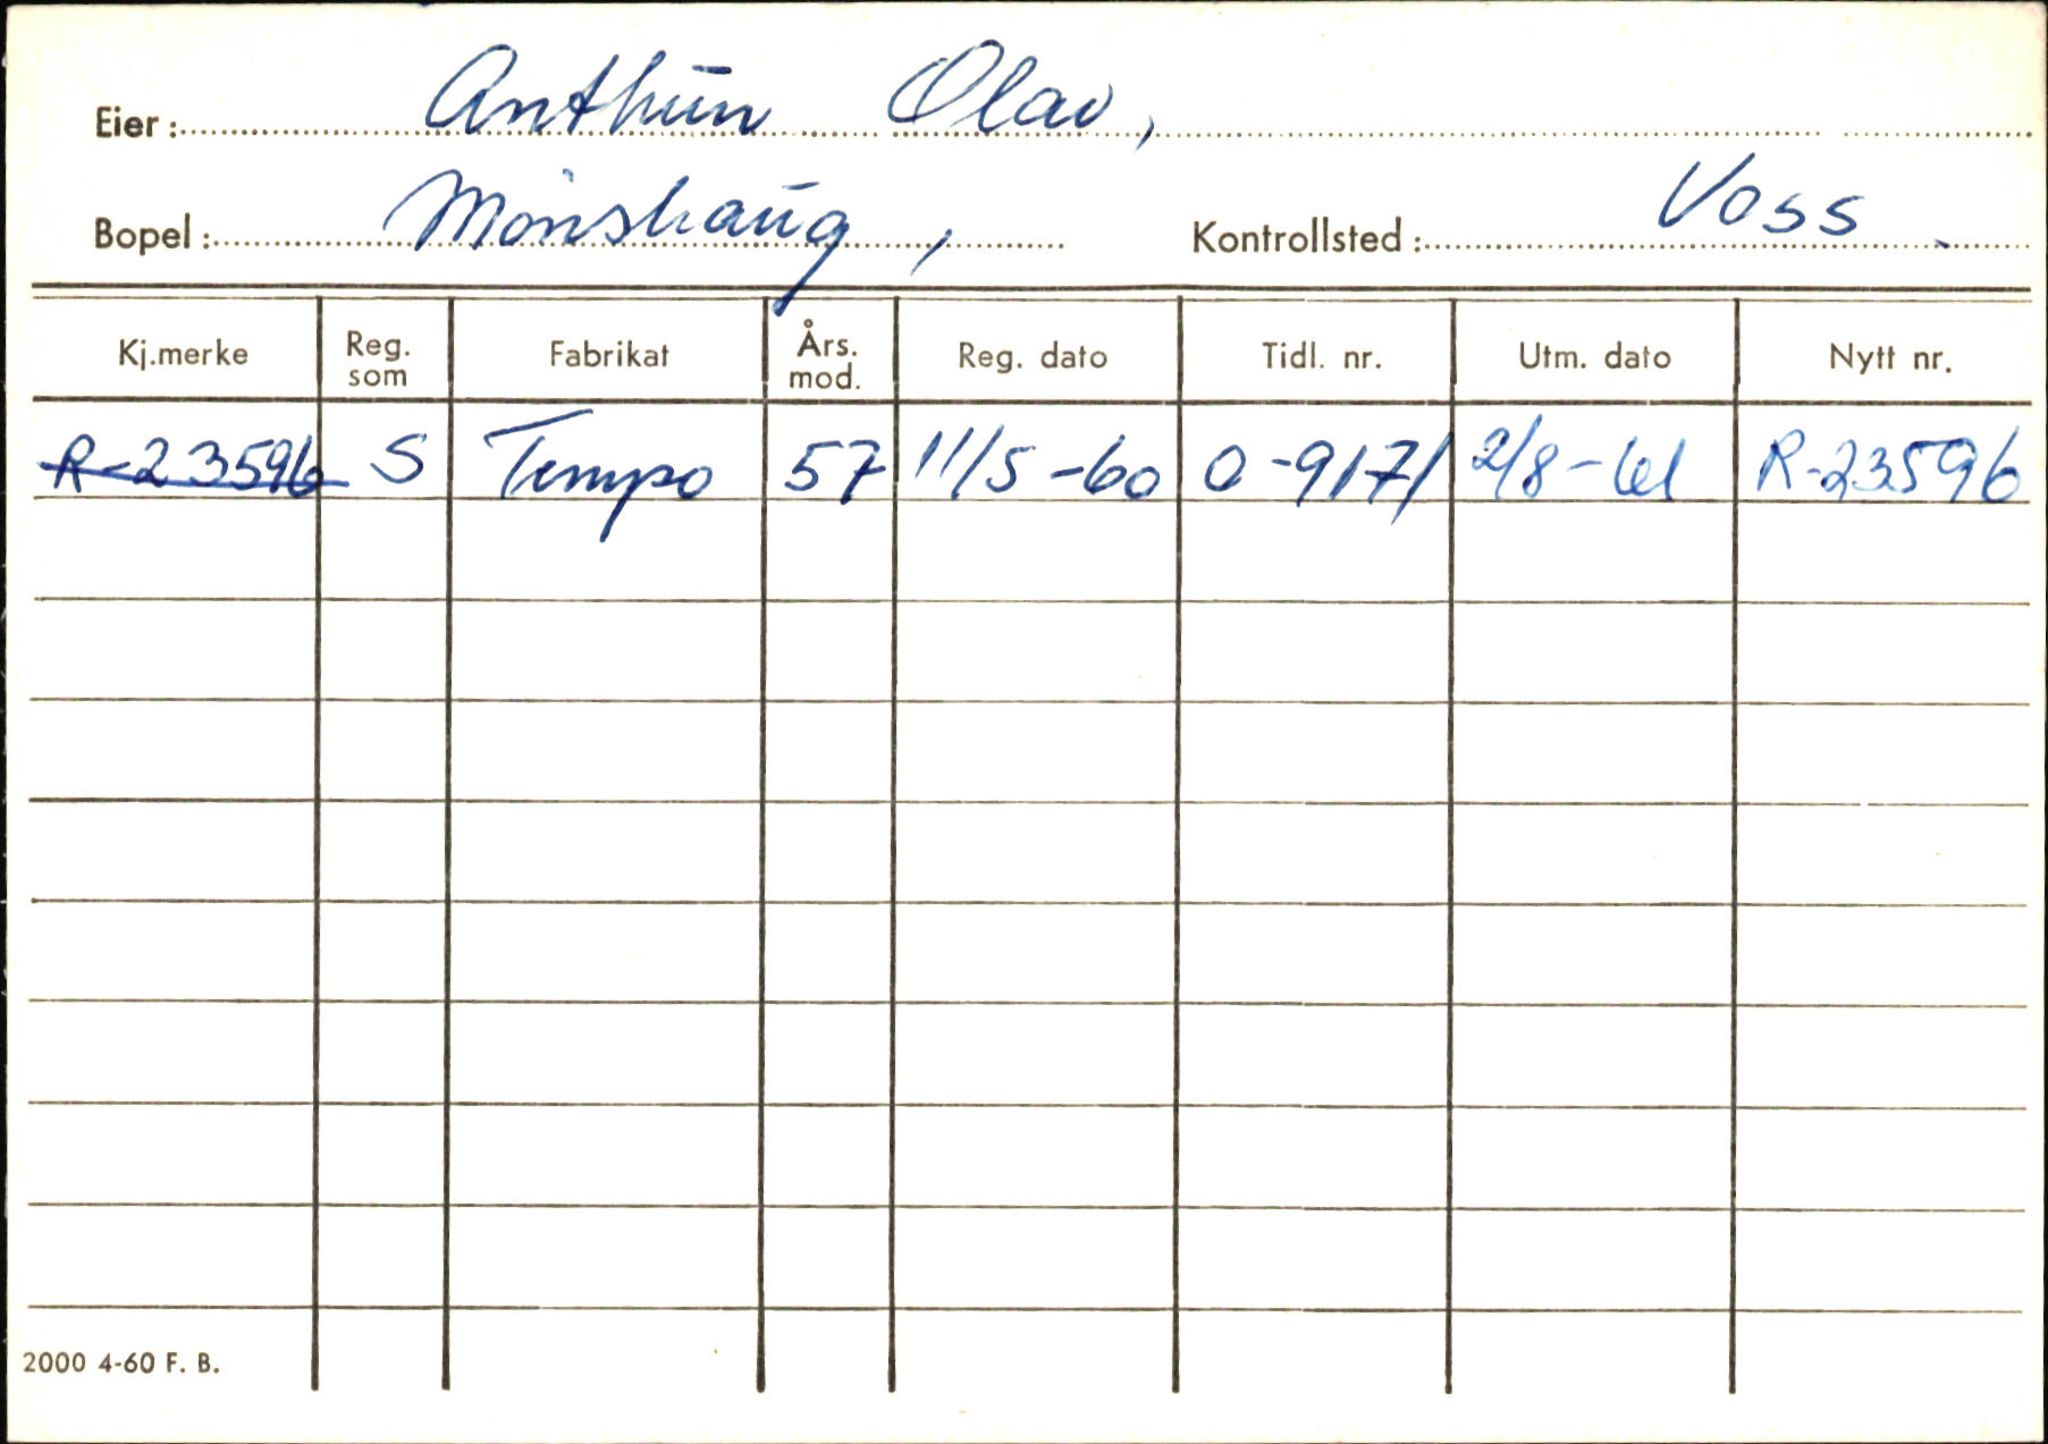 Eier: Anthun Olav,
Bopel: Mönshaug, Kontrollsted: Voss.
Kj.merke Reg. som Fabrikat Års. mod. Reg. dato Tidl. nr. Utm. dato Nytt nr.
R-23596 S Tempo 57 11/5-60 O-9171 2/8-61 R-23596
2000 4-60 F. B.